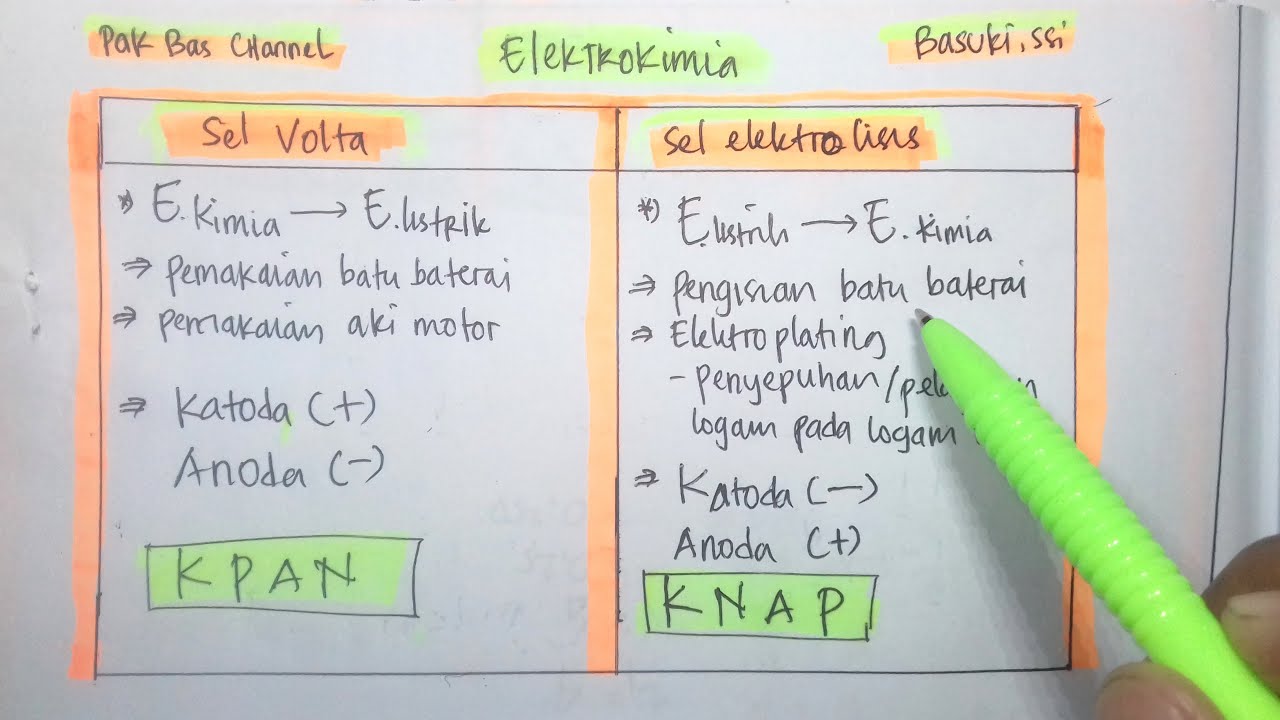 Pak Bas Channel
Elektrokimia
Basuki, SSi
Sel Volta
*) E. Kimia → E. listrik
⇒ pemakaian batu baterai
⇒ pemakaian aki motor
⇒ Katoda (+)
Anoda (-)
KPAN
Sel elektrolisis
*) E. listrik → E. kimia
⇒ pengisian batu baterai
⇒ Elektroplating
- penyepuhan/
logam pada logam
⇒ Katoda (-)
Anoda (+)
KNAP